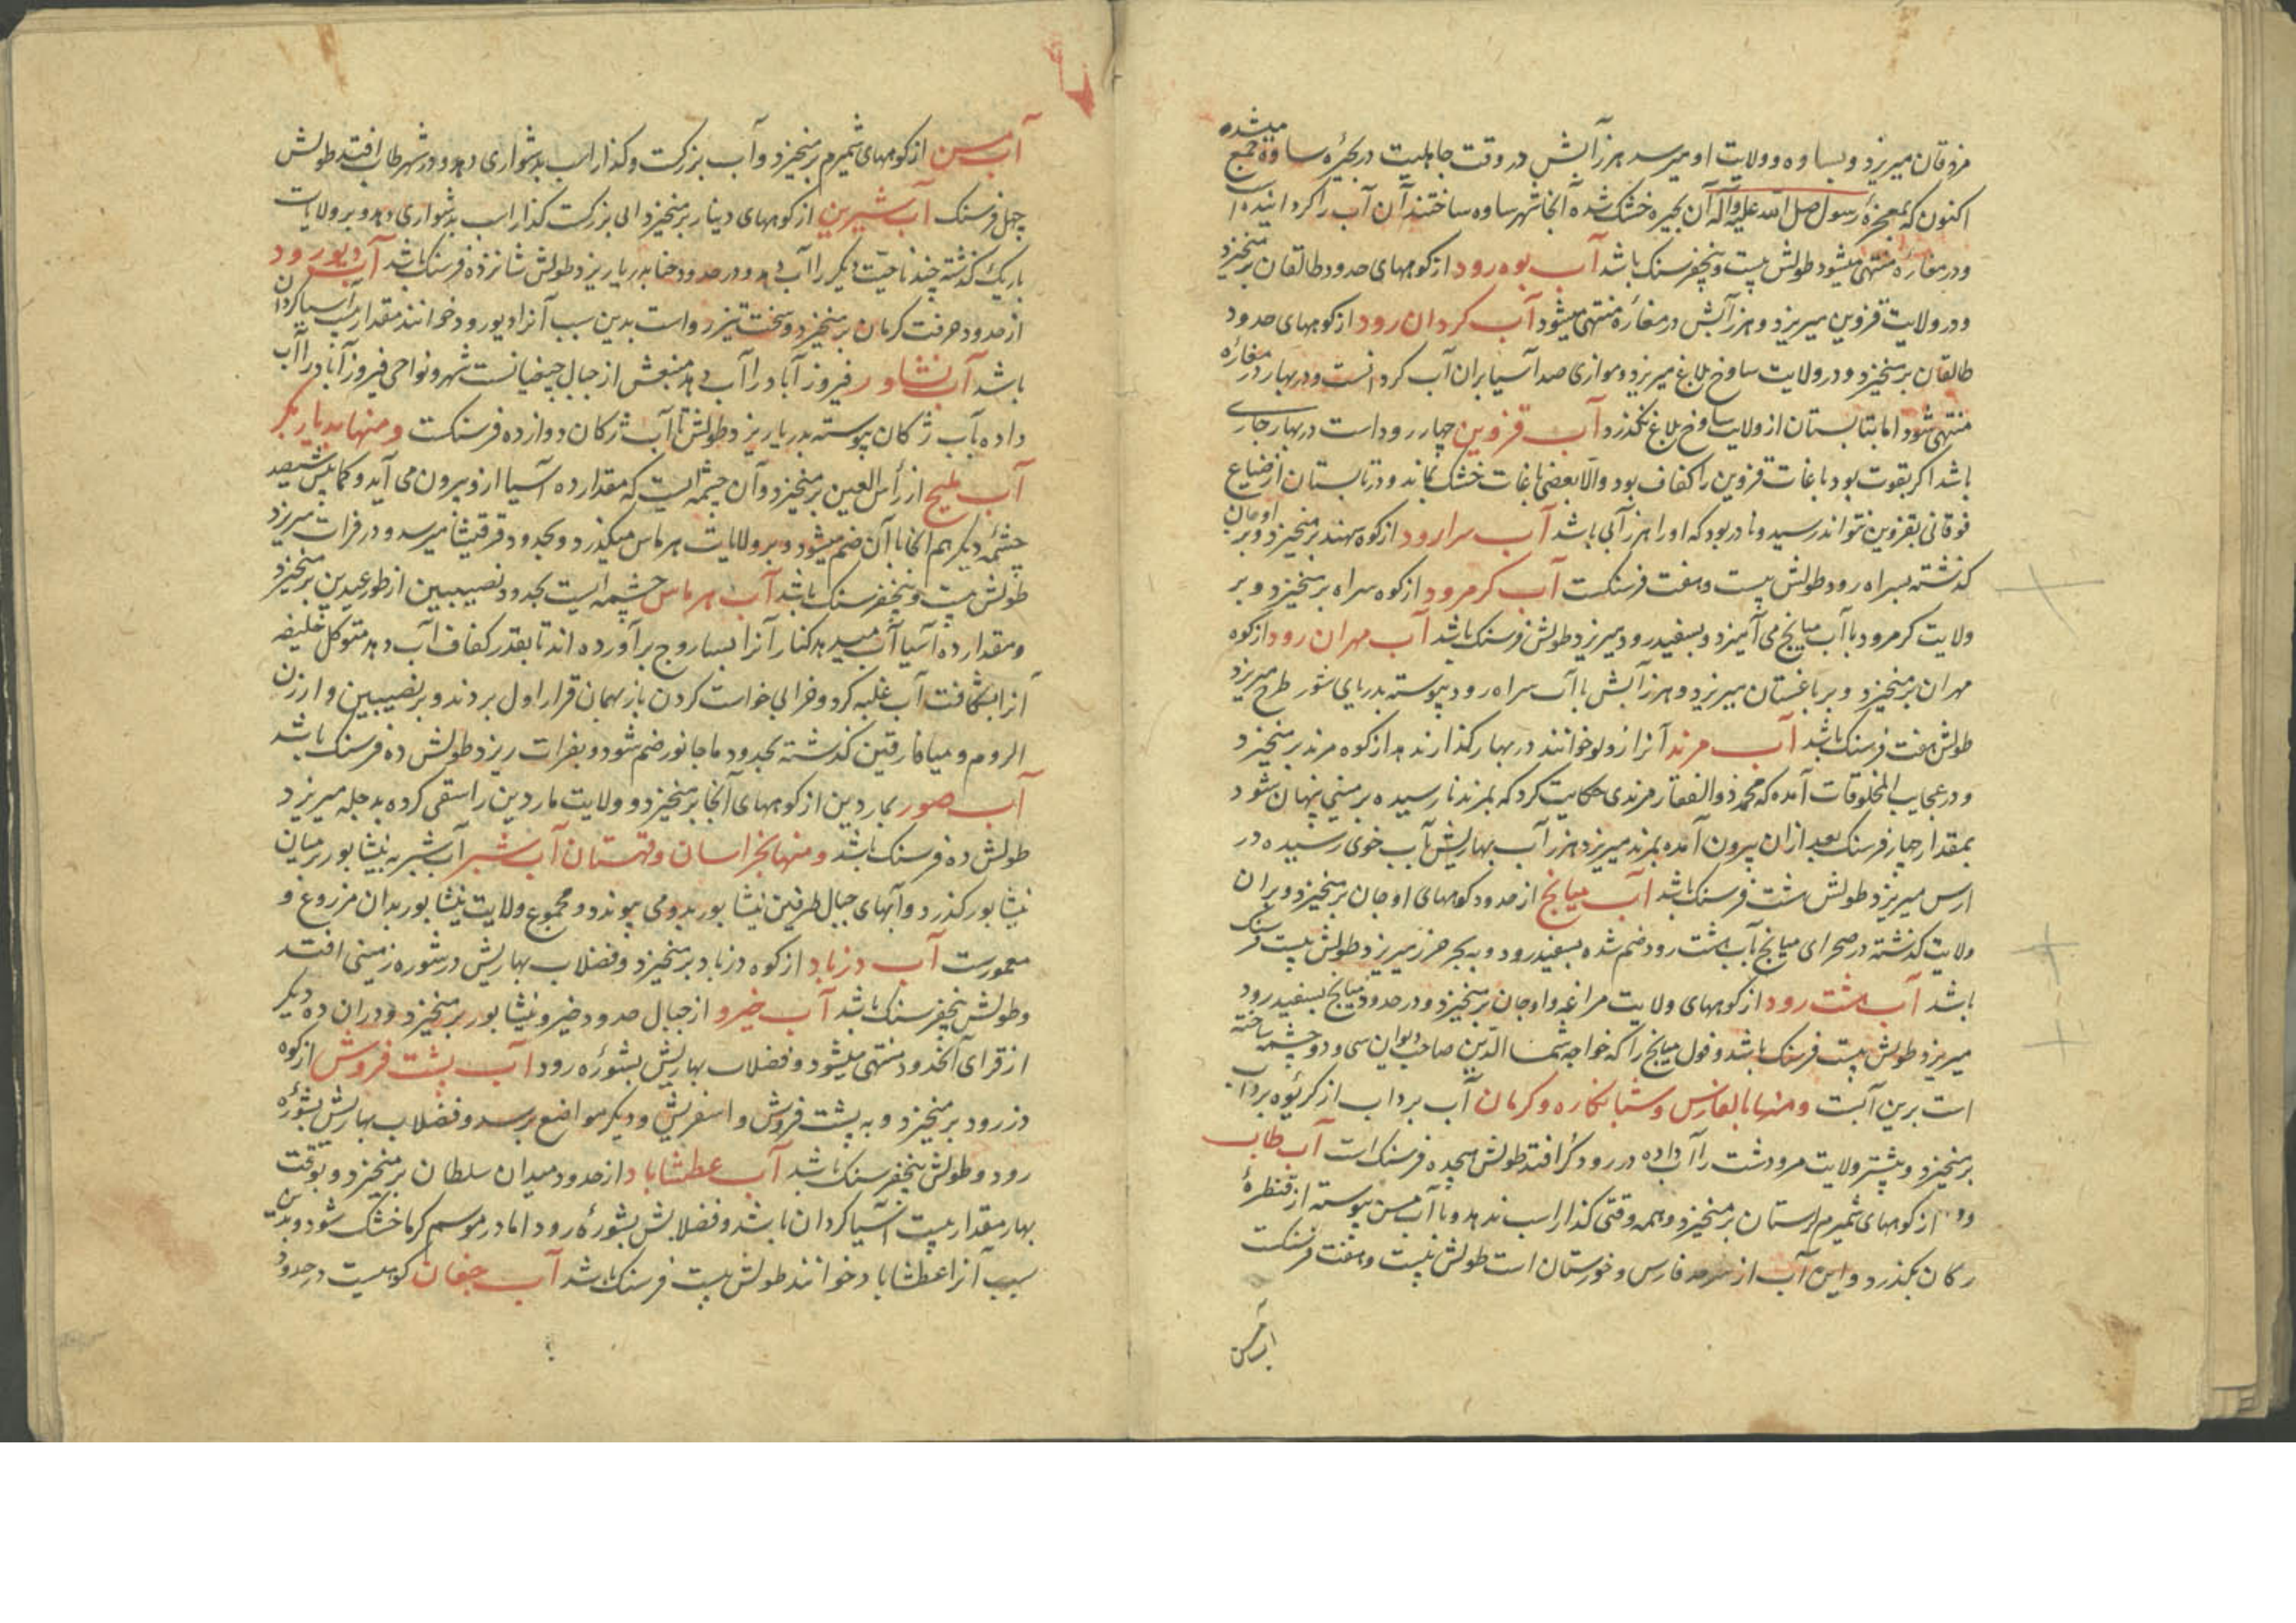 مزدقان میریزد و بساوه و ولایت او میرسد هرز آبش در وقت جاهلیت در بحیرهٔ ساوه جمع میشده
اکنون که بمعجزهٔ رسول صلی الله علیه وآله آن بحیره خشک شده آنجا شهر ساوه ساختند آن آب را کردانیده
ودر مفازه منتهی میشود طولش بیست و پنج فرسنک باشد آب بوه رود از کوههای حدود طالقان برمیخیزد
ودر ولایت قزوین میریزد و هرز آبش در مفازه منتهی میشود آب کردان رود از کوههای حدود
طالقان برمیخیزد و در ولایت ساوخ بلاغ میریزد و موازی صد آسیا بران آب کردانست و در بهار در مفازه
منتهی شود اما بتابستان از ولایت ساوخ بلاغ نکذرد آب قزوین چهار رود است در بهار جاری
باشد اکر بقوت بود باغات قزوین را کفاف بود والا بعضی باغات خشک بماند و در تابستان از ضیاع
فوقانی بقزوین نتواند رسید و نادر بود که او را هرز آبی باشد آب سراورود از کوه سهند برمیخیزد و بر اوجان
کذشته بسراه رود طولش بیست و هفت فرسنکست آب کرمرود از کوه سراه برمیخیزد و بر
ولایت کرمرود با آب میانج می آمیزد و بسفیدرود میریزد طولش فرسنک باشد آب مهران رود از کوه
مهران برمیخیزد و بر باغستان میریزد و هرز آبش با آب سراه رود پیوسته بدریای شور طرح میریزد
طولش هفت فرسنک باشد آب مرند آنرا زولو خوانند در بهار کذار ندهد از کوه مرند برمیخیزد
و در عجایب المخلوقات آمده که محمد ذوالفقار مرندی حکایت کرد که بمرند نارسیده بر زمینی پنهان شود
بمقدار چهار فرسنک بعد ازان بیرون آمده بمرند میریزد هرز آب بهاریش بآب خوی رسیده در
ارس میریزد طولش هشت فرسنک باشد آب میانج از حدود کوههای اوجان برمیخیزد و بران
ولایت کذشته در صحرای میانج بآب هشت رود ضم شده بسفیدرود و به بحر خزر میریزد طولش بیست فرسنک
باشد آب هشت رود از کوههای ولایت مراغه و اوجان برمیخیزد و در حدود میانج بسفیدرود
میریزد طولش بیست فرسنک باشد و فول میانج را که خواجه شمس الدین صاحب دیوان سی و دو چشمه ساخته
است برین آبست ومنها بالفارس و شبانکاره و کرمان آب برداب از کریوه برداب
برمیخیزد و بیشتر ولایت مرودشت را آب داده در رود کر افتد طولش هیجده فرسنک است آب طاب
از کوههای شمیرم لرستان برمیخیزد و همه وقتی کذار اسب ندهد و با آب مسن پیوسته از قنطرهٔ
رکان بکذرد و این آب از سرحد فارس و خوزستان است طولش بیست و هفت فرسنکست
آب مسن
آب مسن از کوههای شمیرم برمیخیزد و آب بزرکست و کذار اسب بدشواری دهد و در نهر طاب افتد طولش
چهل فرسنک آب شیرین از کوههای دینار برمیخیزد ابی بزرکست کذار اسب بدشواری دهد و بر ولایات
باریک کذشته چند ناحیت دیکر را آب دهد و در حدود جنابه بدریا ریزد طولش شانزده فرسنک باشد آب دیورود
از حدود جرفت کرمان برمیخیزد و سخت تیز رو است بدین سبب آنرا دیورود خوانند مقدار بیست آسیا کردان
باشد آب نشاور فیروز آباد را آب دهد منبعش از جبال چنیفیانست شهر و نواحی فیروز آباد را آب
داده بآب ژکان پیوسته بدریا ریزد طولش تا آب ژکان دوازده فرسنکست ومنها بدیار بکر
آب بلیخ از رأس العین برمیخیزد و آن چشمه ایست که مقدار ده آسیا ازو بیرون می آید و کمابیش سیصد
چشمهٔ دیکر هم آنجا با آن ضم میشود و بر ولایات هرماس میکذرد و بحدود قرقیشا میرسد و در فرات میریزد
طولش بیست و پنج فرسنک باشد آب هرماس چشمه ایست بحدود نصیبین از طور عبدین برمیخیزد
ومقدار ده آسیا آب میدهد کنار آنرا بساروج برآورده اند تا بقدر کفاف آب دهد متوکل خلیفه
آنرا بشکافت آب غلبه کرد و خرابی خواست کردن باز بهمان قرار اول بردند و بر نصیبین و ارزن
الروم و میافارقین کذشته بحدود ماجانور ضم شود و بفرات ریزد طولش ده فرسنک باشد
آب صور بماردین از کوههای آنجا برمیخیزد و ولایت ماردین را سقی کرده بدجله میریزد
طولش ده فرسنک باشد ومنها بخراسان و قهستان آب شبر آب شبر به نیشابور بر میان
نیشابور کذرد و آبهای جبال طرفین نیشابور بدو می پیوندد و مجموع ولایت نیشابور بدان مزروع و
معمورست آب دزباد از کوه دزباد برمیخیزد و فضلاب بهاریش در شوره زمینی افتد
وطولش پنج فرسنک باشد آب خیرو از جبال حدود خیرو نیشابور برمیخیزد و دران ده دیکر
از قرای آنحدود منتهی میشود و فضلاب بهاریش بشوره رود آب پشت فروش از کوه
دزرود برمیخیزد و به پشت فروش و اسفریش و دیکر مواضع برسد و فضلاب بهاریش بشوره
رود و طولش پنج فرسنک باشد آب عطشاباد از حدود میدان سلطان برمیخیزد و بوقت
بهار مقدار بیست آسیا کردان باشد و فضلابش بشوره رود اما در موسم کرما خشک شود و بدین
سبب آنرا عطشاباد خوانند طولش بیست فرسنک باشد آب جغان کوهیست در حدود